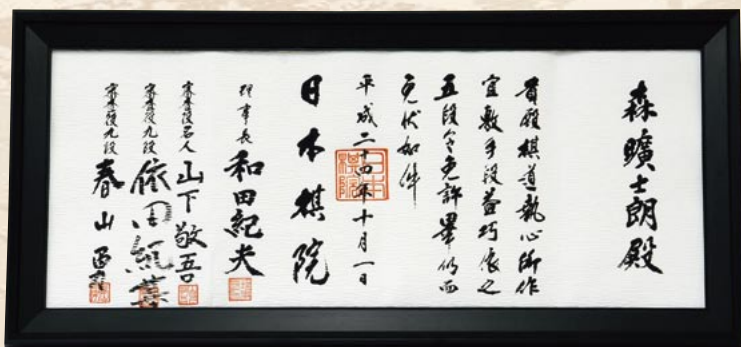 森曠士朗殿
貴殿棋道執心所作
宜敷手段益巧依之
五段令免許畢仍而
免状如件
平成二十四年十月一日
日本棋院
理事長 和田紀夫
審査役名人 山下敬吾
審査役九段 依田紀基
審査役九段 春山勇
日本棋院